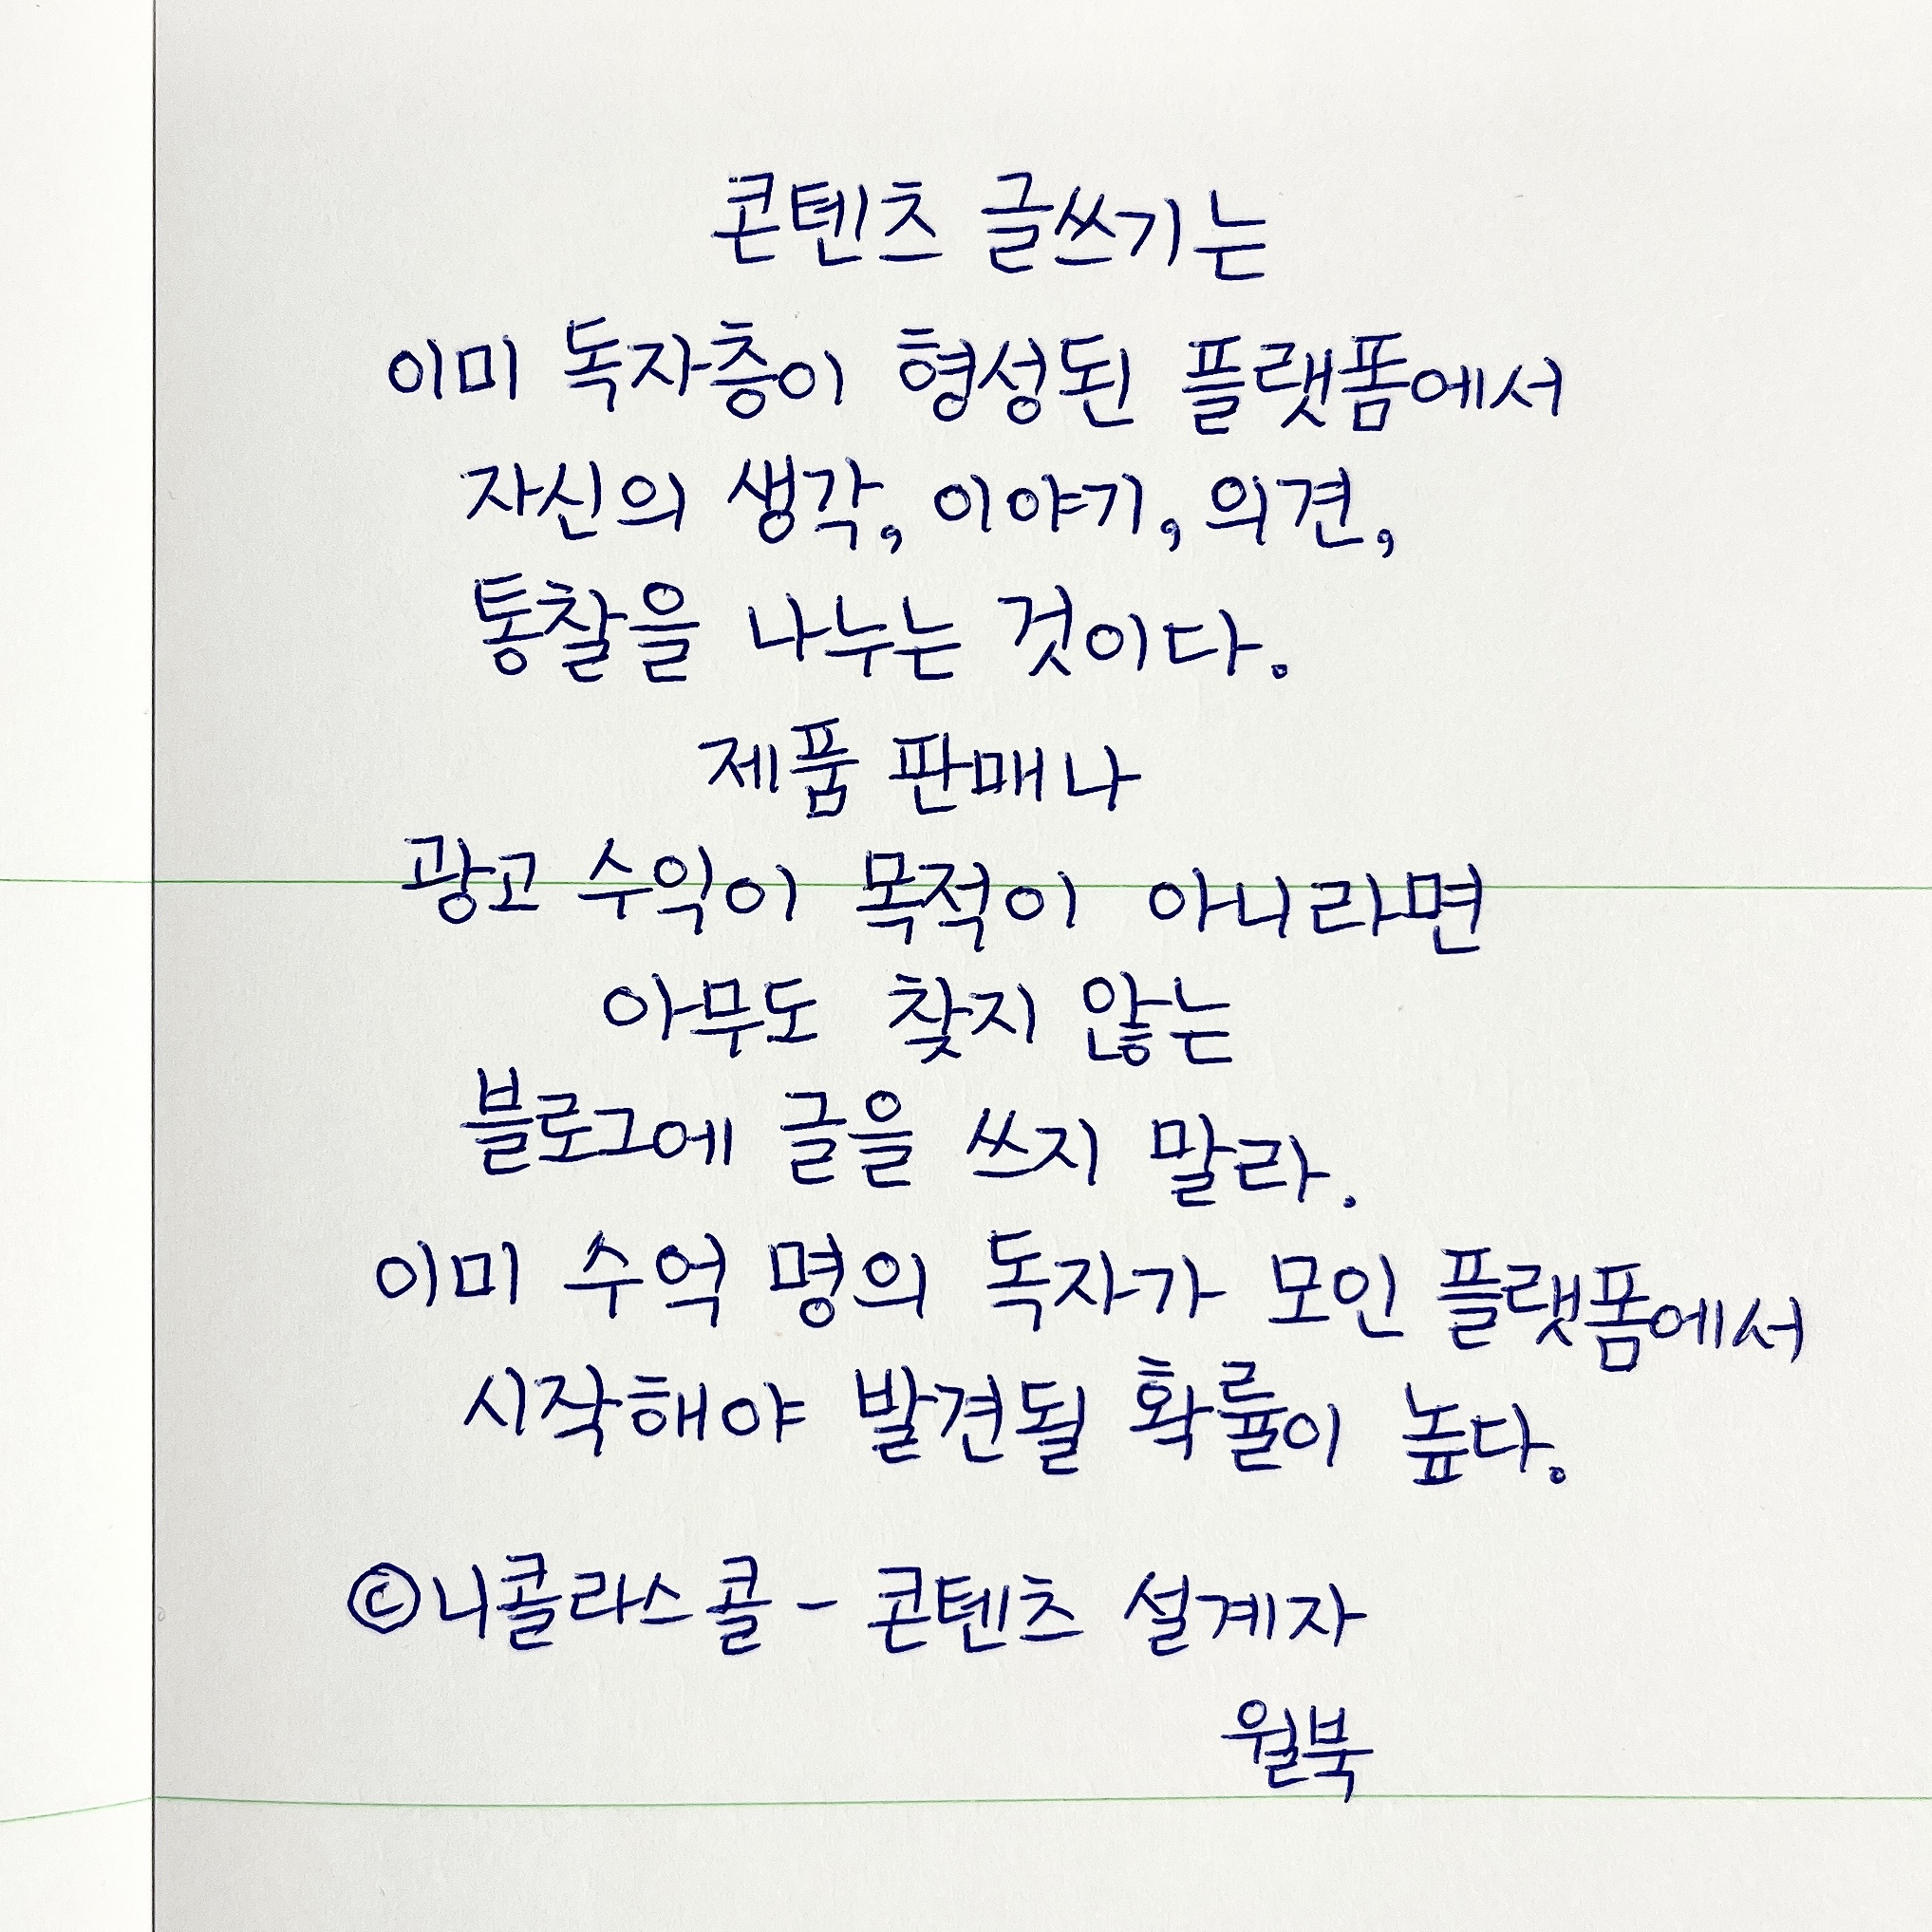 콘텐츠 글쓰기는
이미 독자층이 형성된 플랫폼에서
자신의 생각, 이야기, 의견,
통찰을 나누는 것이다.
제품 판매나
광고 수익이 목적이 아니라면
아무도 찾지 않는
블로그에 글을 쓰지 말라.
이미 수억 명의 독자가 모인 플랫폼에서
시작해야 발견될 확률이 높다.
©니콜라스 콜 - 콘텐츠 설계자
월북